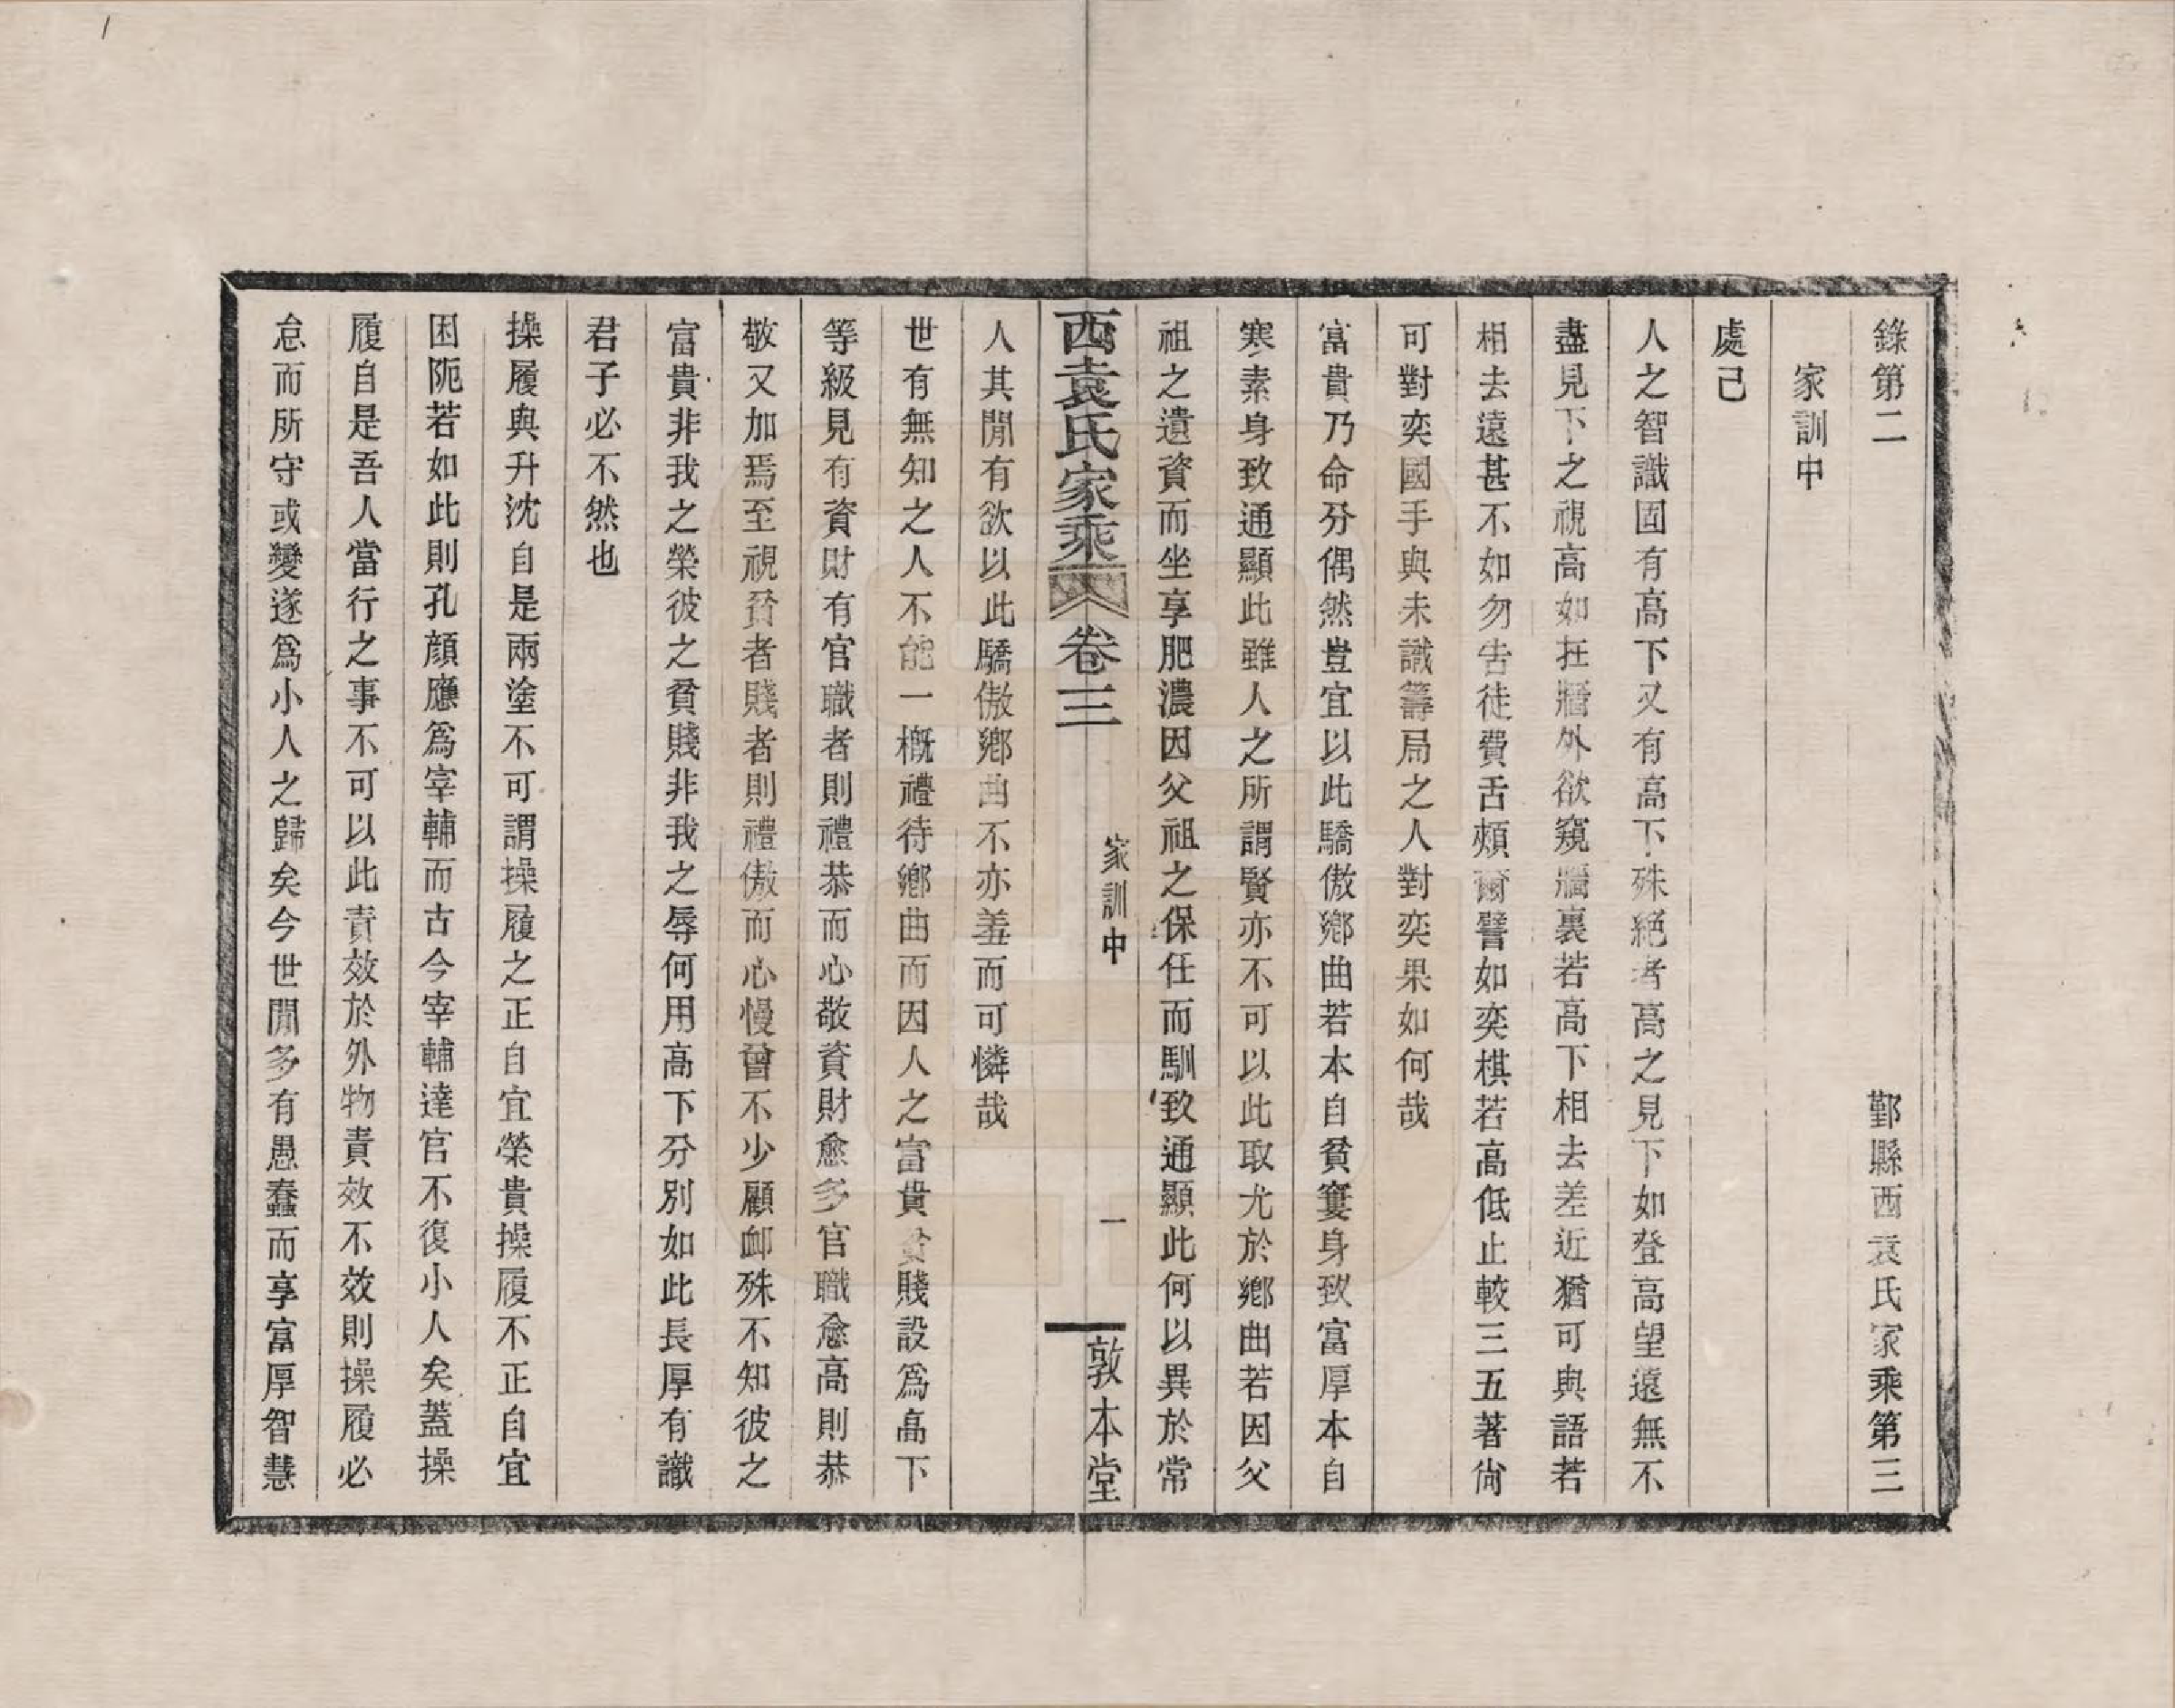 錄第二　鄞縣西袁氏家乘第三
家訓中
處己
人之智識固有高下又有高下殊絕者高之見下如登高望遠無不
盡見下之視高如在牆外欲窺牆裏若高下相去差近猶可與語若
相去遠甚不如勿告徒費舌頰爾譬如奕棋若高低止較三五著尙
可對奕國手與未識籌局之人對奕果如何哉
富貴乃命分偶然豈宜以此驕傲鄉曲若本自貧窶身致富厚本自
寒素身致通顯此雖人之所謂賢亦不可以此取尤於鄉曲若因父
祖之遺資而坐享肥濃因父祖之保任而馴致通顯此何以異於常
西袁氏家乘 卷三 家訓中 一 敦本堂
人其閒有欲以此驕傲鄉曲不亦羞而可憐哉
世有無知之人不能一槪禮待鄉曲而因人之富貴貧賤設爲高下
等級見有資財有官職者則禮恭而心敬資財愈多官職愈高則恭
敬又加焉至視貧者賤者則禮傲而心慢曾不少顧卹殊不知彼之
富貴非我之榮彼之貧賤非我之辱何用高下分別如此長厚有識
君子必不然也
操履與升沈自是兩塗不可謂操履之正自宜榮貴操履不正自宜
困阨若如此則孔顏應爲宰輔而古今宰輔達官不復小人矣蓋操
履自是吾人當行之事不可以此責效於外物責效不效則操履必
怠而所守或變遂爲小人之歸矣今世閒多有愚蠢而享富厚智慧